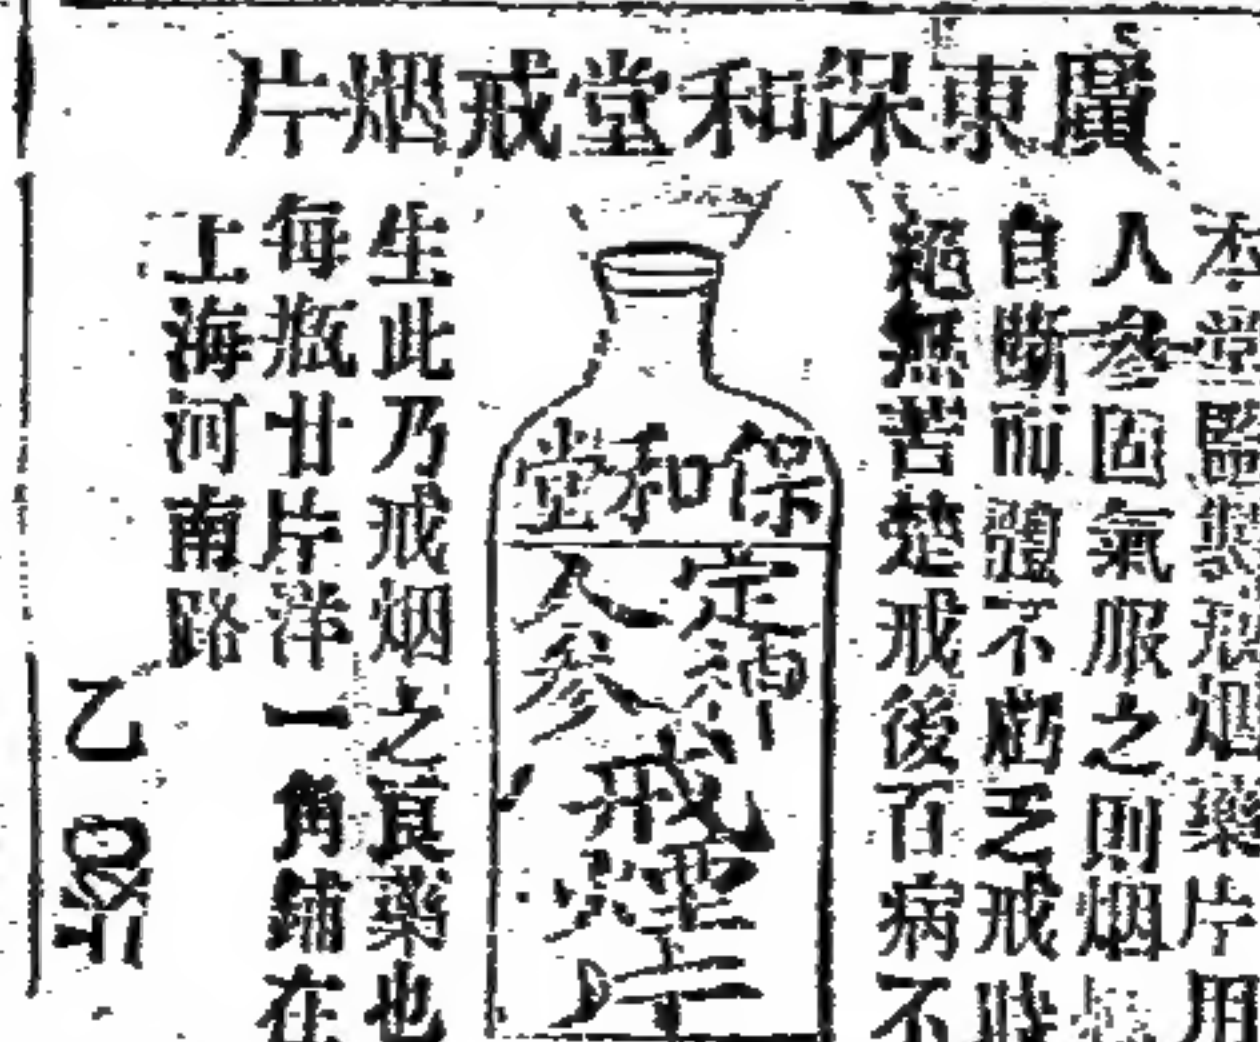 廣東保和堂戒烟片
本堂監製戒烟藥片用
人參固氣服之則烟
自斷而體不虧乏戒時
絕無苦楚戒後百病不
保和堂
定酒
人參
戒煙片
生此乃戒烟之良藥也
每瓶廿片洋一角鋪在
上海河南路